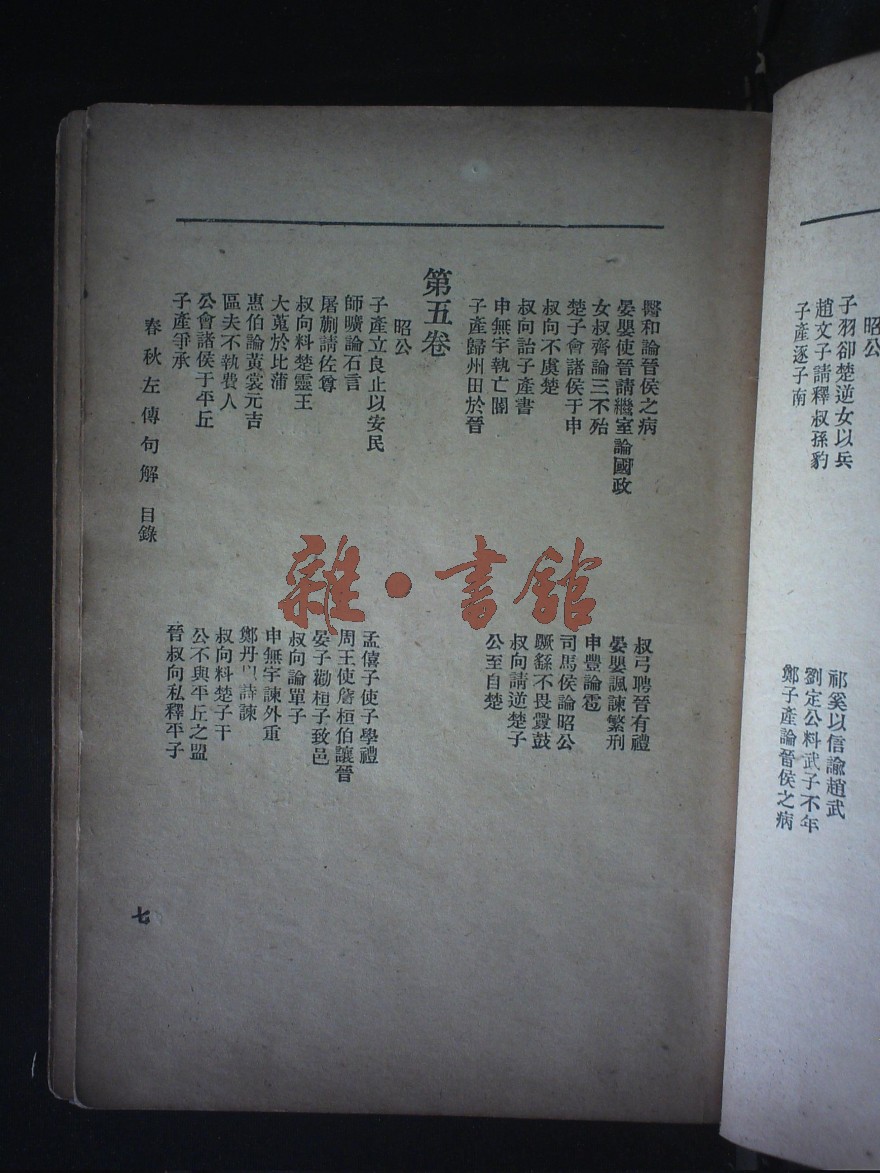 昭公
子羽卻楚逆女以兵
趙文子請釋叔孫豹
子產逐子南
祁奚以信諭趙武
劉定公料武子不年
鄭子產論晉侯之病
醫和論晉侯之病
晏嬰使晉請繼室論國政
女叔齊論三不殆
楚子會諸侯于申
叔向不虞楚
叔向詒子產書
申無宇執亡閽
子產歸州田於晉
叔弓聘晉有禮
晏嬰諷諫繁刑
申豐論雹
司馬侯論昭公
蹶繇不畏釁鼓
叔向請逆楚子
公至自楚
第五卷
昭公
子產立良止以安民
師曠論石言
屠蒯請佐尊
叔向料楚靈王
大蒐於比蒲
惠伯論黃裳元吉
區夫不執費人
公會諸侯于平丘
子產爭承
孟僖子使子學禮
周王使詹桓伯讓晉
晏子勸桓子致邑
叔向論單子
申無宇諫外重
鄭丹以詩諫
叔向料楚子干
公不與平丘之盟
晉叔向私釋平子
春秋左傳句解 目錄
七
雜·書館